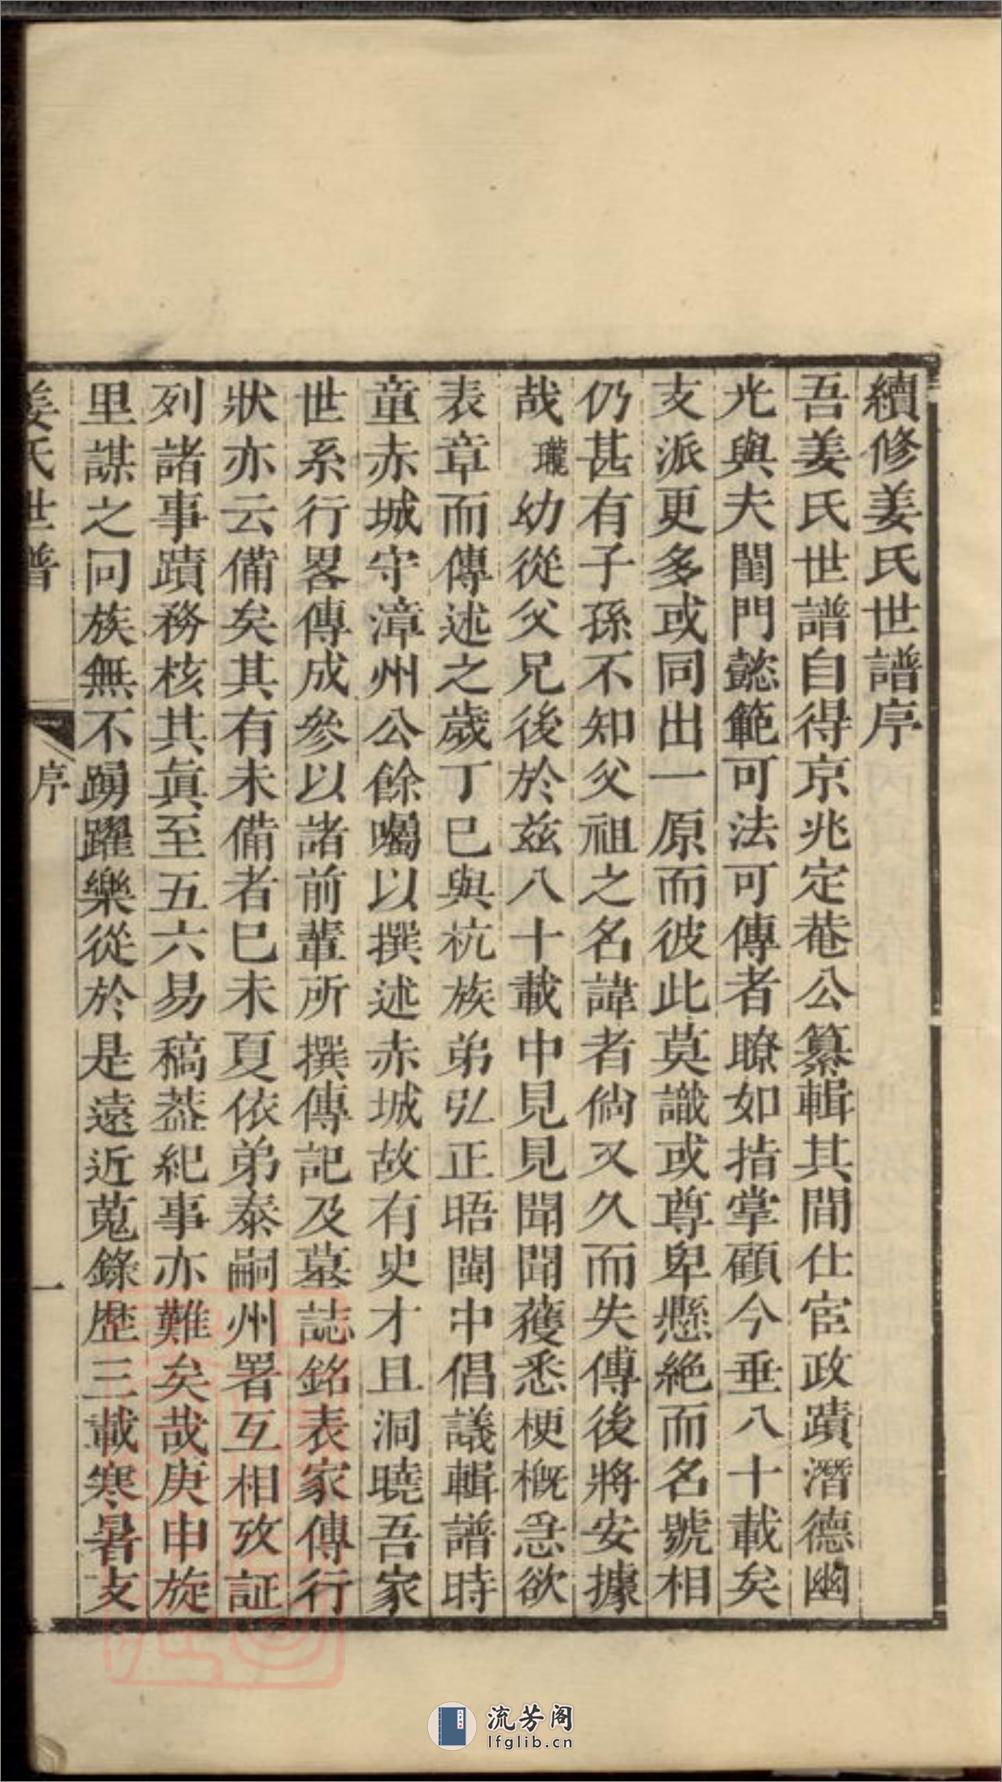 續修姜氏世譜序
吾姜氏世譜自得京兆定菴公纂輯其間仕宦政蹟潛德幽
光與夫閨門懿範可法可傳者瞭如指掌顧今垂八十載矣
支派更多或同出一原而彼此莫識或尊卑懸絶而名號相
仍甚有子孫不知父祖之名諱者倘又久而失傳後將安據
哉瓏幼從父兄後於兹八十載中見見聞聞獲悉梗概急欲
表章而傳述之歲丁巳與杭族弟弘正晤閩中倡議輯譜時
童赤城守漳州公餘囑以撰述赤城故有史才且洞曉吾家
世系行畧傳成參以諸前輩所撰傳記及墓誌銘表家傳行
狀亦云備矣其有未備者巳未夏依弟泰嗣州署互相攷証
列諸事蹟務核其眞至五六易稿葢紀事亦難矣哉庚申旋
里謀之同族無不踴躍樂從於是遠近蒐錄歴三載寒暑支
姜氏世譜
序
一
流芳阁
lfglib.cn